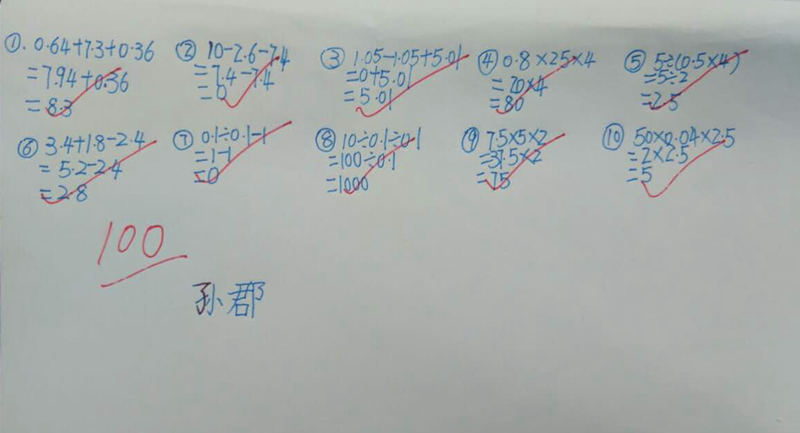 ①. 0.64+7.3+0.36
=7.94+0.36
=8.3
② 10-2.6-7.4
=7.4-7.4
=0
③ 1.05-1.05+5.01
=0+5.01
=5.01
④ 0.8×25×4
=20×4
=80
⑤ 5÷(0.5×4)
=5÷2
=2.5
⑥ 3.4+1.8-2.4
=5.2-2.4
=2.8
⑦ 0.1÷0.1-1
=1-1
=0
⑧ 10÷0.1÷0.1
=100÷0.1
=1000
⑨ 7.5×5×2
=37.5×2
=75
⑩ 50×0.04×2.5
=2×2.5
=5
100
孙郡